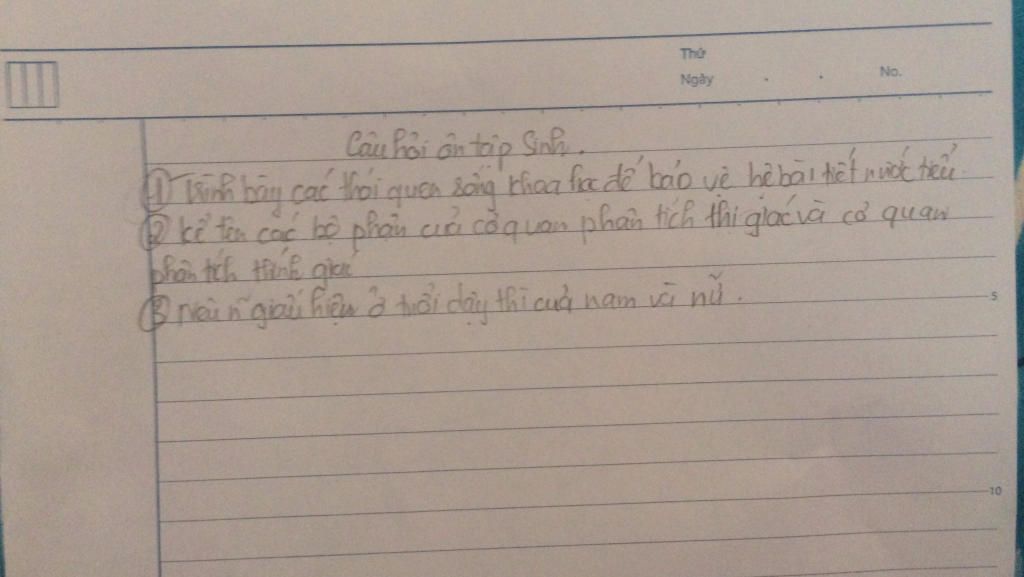 Thứ
Ngày . . No.
Câu hỏi ôn tập Sinh.
① Trình bày các thói quen sống khoa học để bảo vệ hệ bài tiết nước tiểu.
② kể tên các bộ phận của cơ quan phân tích thị giác và cơ quan
phân tích thính giác
③ Nêu n~ giấu hiệu ở tuổi dậy thì của nam và nữ.
5
10